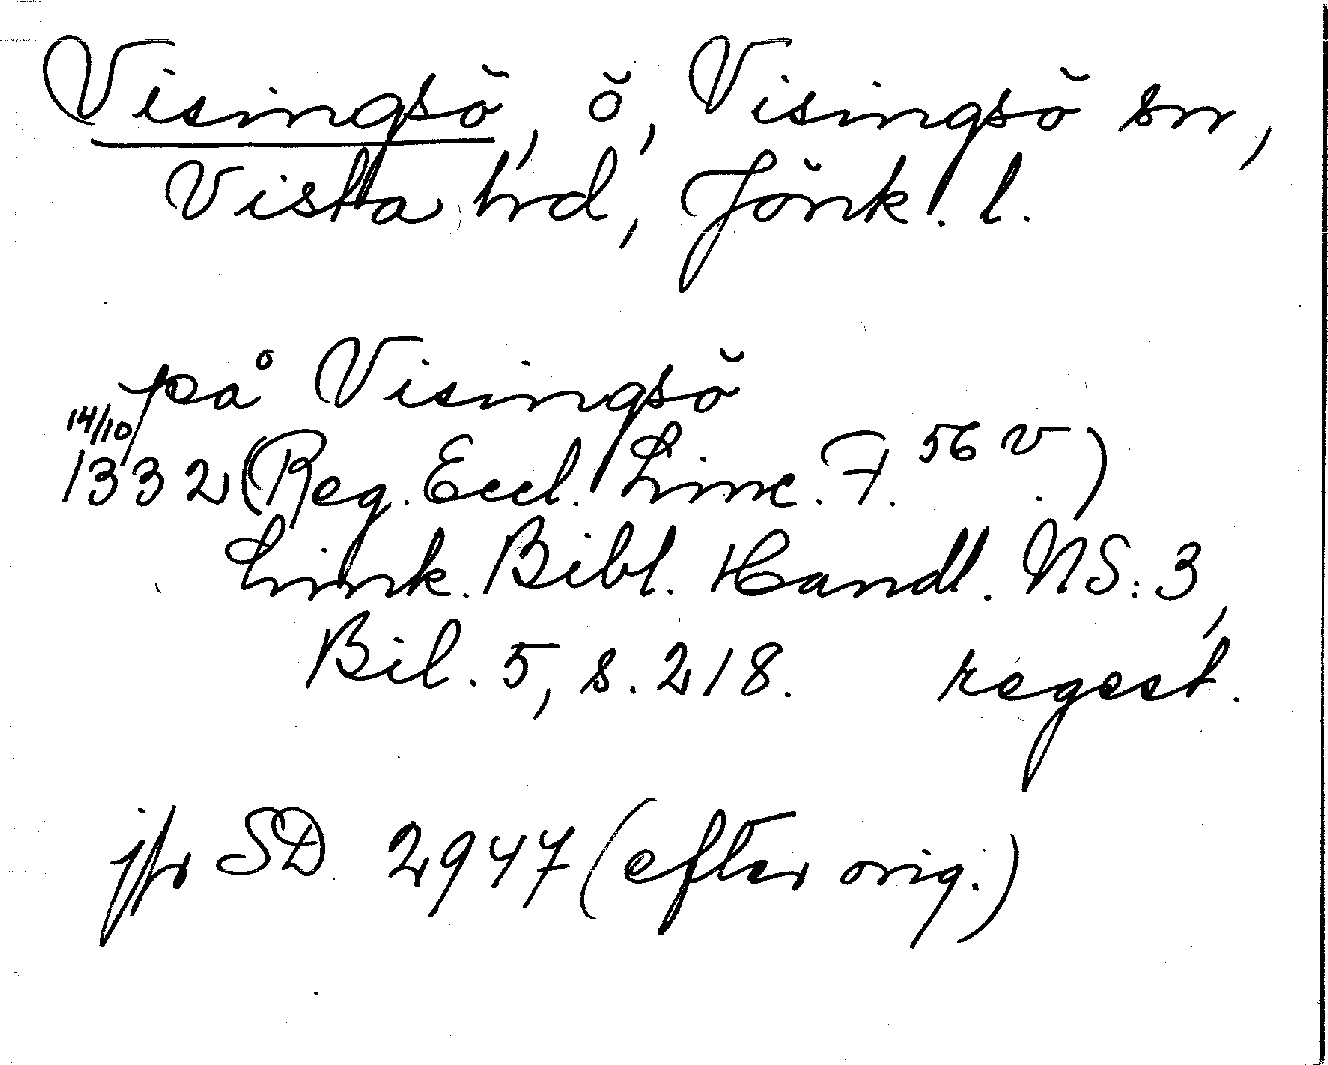 Visingsö, ö, Visingsö sn,
Vista hrd, Jönk. l.
på Visingsö
14/10
1332 (Reg. Eccl. Linc. F. 56 v.)
Linnk. Bibl. Handl. NS: 3,
Bil. 5, s. 218. regest.
jfr SD 2947 (efter orig.)